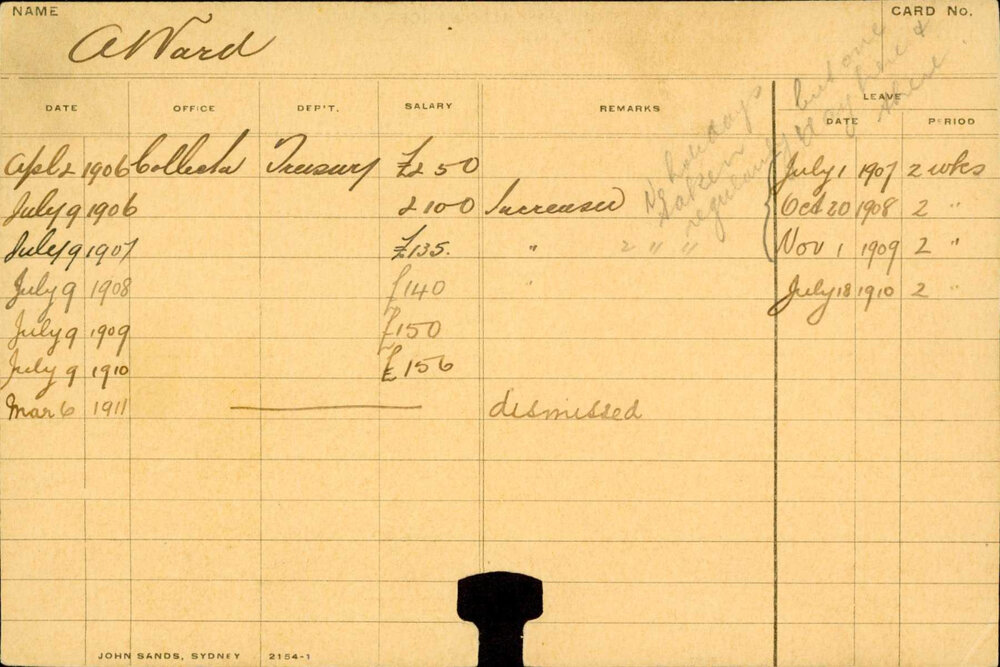 NAME
CARD No.
A Ward
DATE OFFICE DEP'T. SALARY REMARKS LEAVE
DATE PERIOD
No holidays
taken
regularly
but one
day here &
there
Apl 2 1906 Collector Treasury £2 50 July 1 1907 2 wks
July 9 1906 £100 Increased Oct 20 1908 2 "
July 9 1907 £135. " 2 " " Nov 1 1909 2 "
July 9 1908 £140 " July 18 1910 2 "
July 9 1909 £150
July 9 1910 £156
Mar 6 1911 dismissed
JOHN SANDS, SYDNEY 2154-1